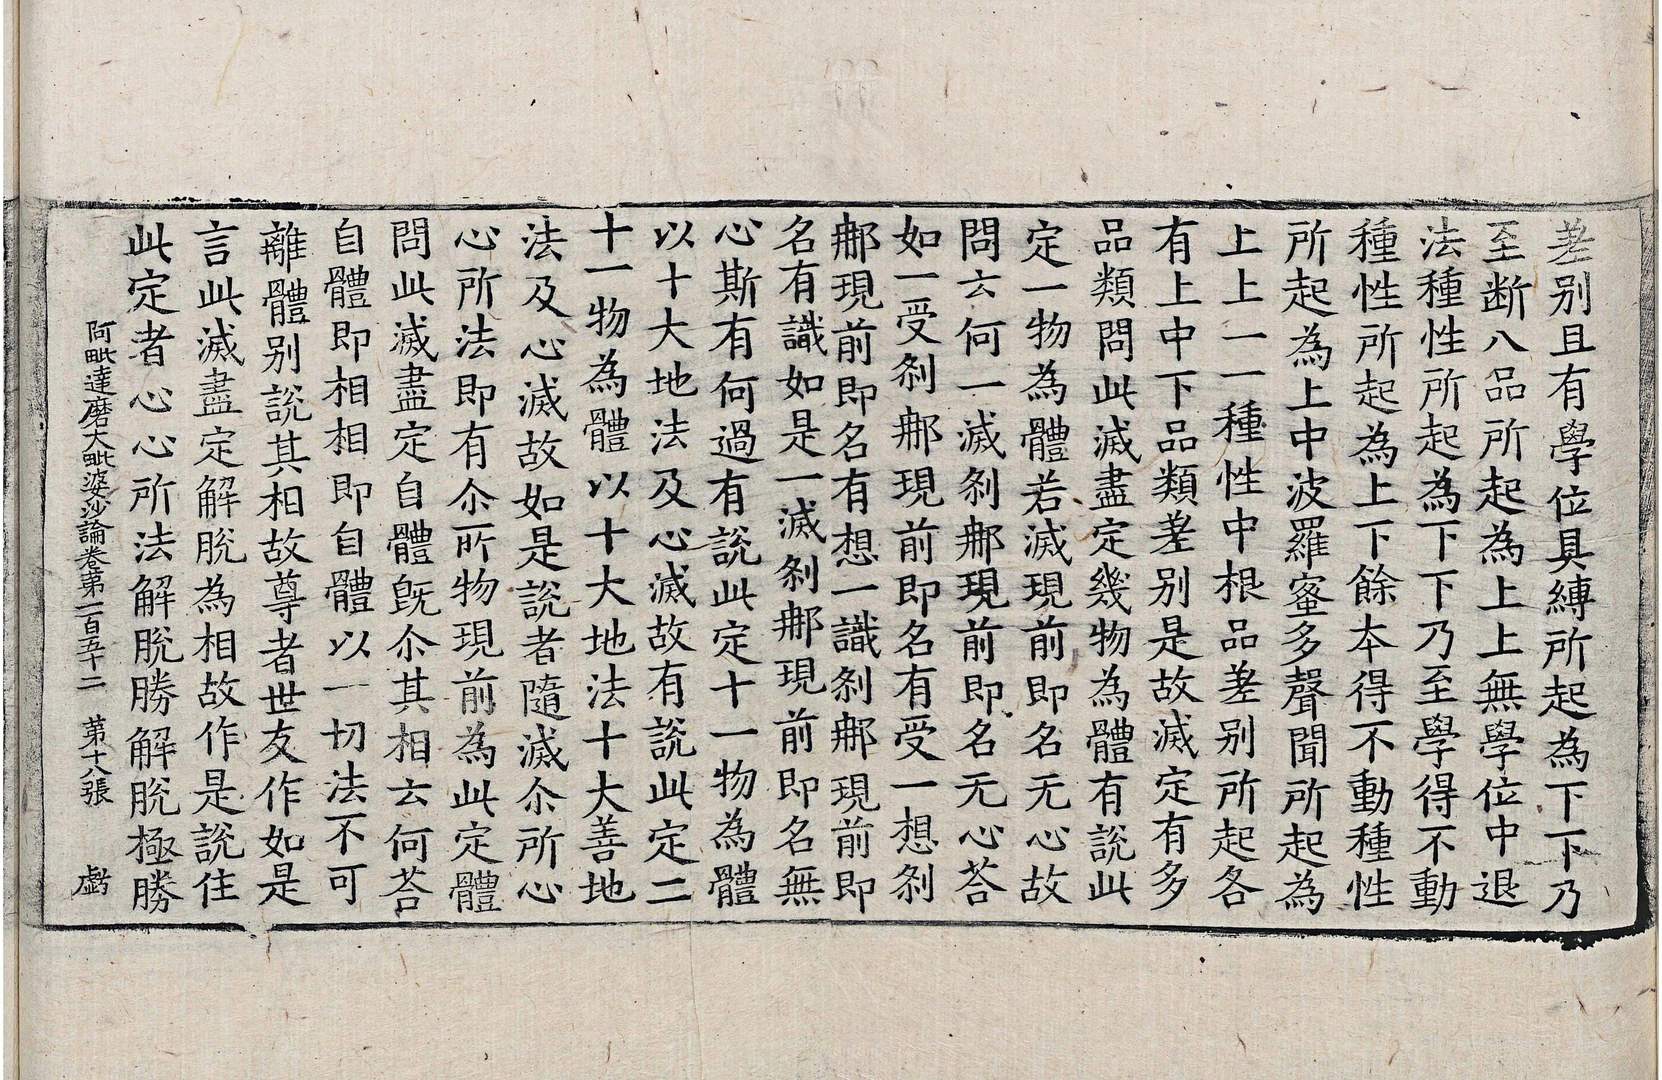 差别且有學位具縛所起為下下乃
至断八品所起為上上無學位中退
法種性所起為下下乃至學得不動
種性所起為上下餘本得不動種性
所起為上中波羅蜜多聲聞所起為
上上一一種性中根品差别所起各
有上中下品類差别是故滅定有多
品類問此滅盡定幾物為體有說此
定一物為體若滅現前即名无心故
問云何一滅刹𨚗現前即名无心荅
如一受刹𨚗現前即名有受一想刹
𨚗現前即名有想一識刹𨚗現前即
名有識如是一滅刹𨚗現前即名無
心斯有何過有說此定十一物為體
以十大地法及心滅故有說此定二
十一物為體以十大地法十大善地
法及心滅故如是說者隨滅尒所心
心所法即有尒所物現前為此定體
問此滅盡定自體旣尒其相云何荅
自體即相相即自體以一切法不可
離體别說其相故尊者世友作如是
言此滅盡定解脫為相故作是說住
此定者心心所法解脫勝解脫極勝
阿毗達磨大毗婆沙論卷第一百五十二 第十八張 虧